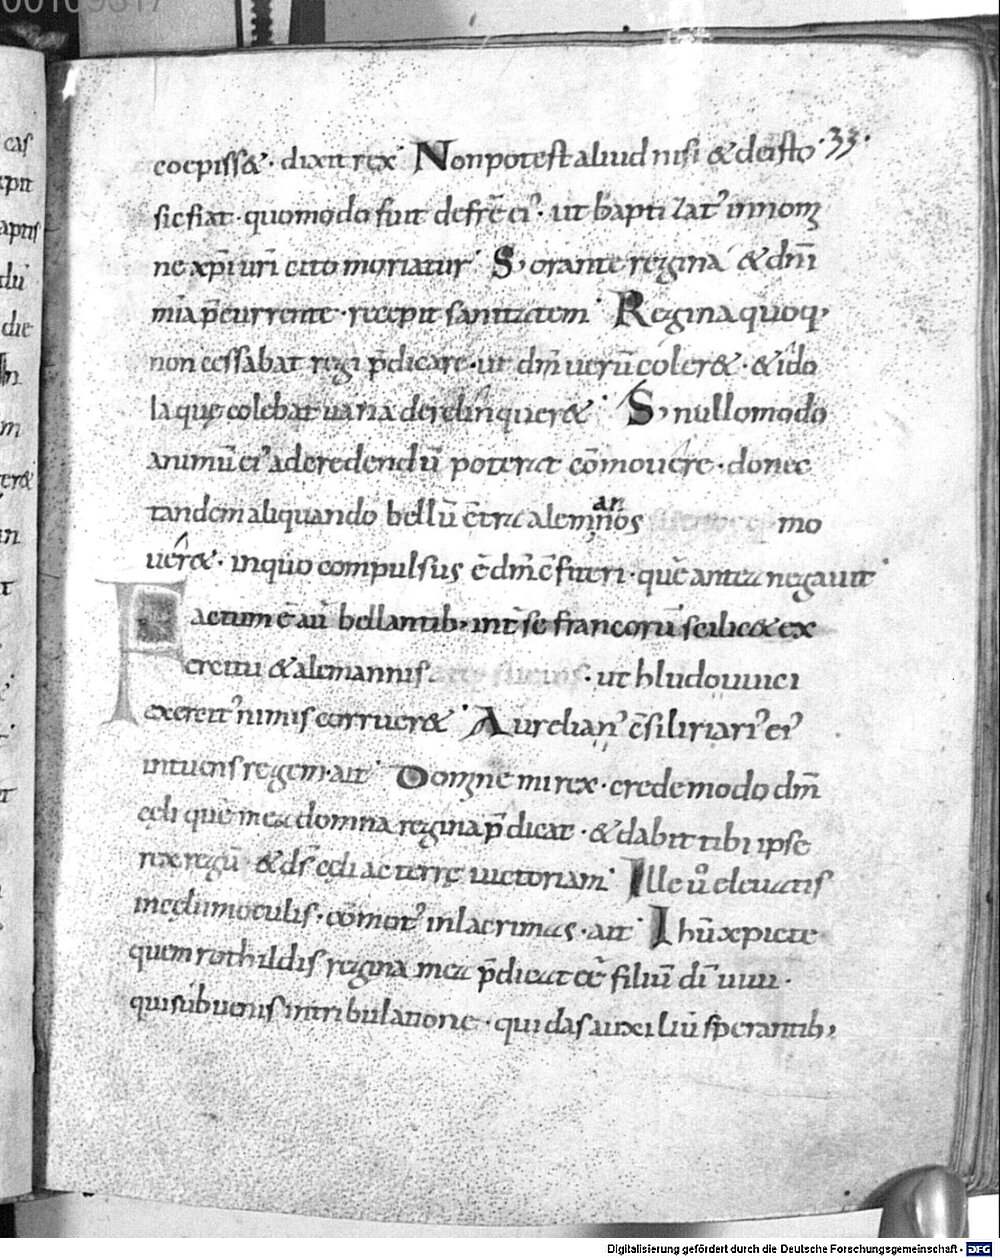 coepiss&. dixit rex. Nonpotest aliud nisi & deisto .33.
sicfiat. quomodo fuit defrē ei'. ut bapti zat' innom
ne xp̄i uri cito moriatur. S; orante regina &dn̄i
mia p̄currente. recepit sanitatem. Regina quoq;
non cessabat regi p̄dicare. ut dm̄ uerū coler&. & ido
la que colebat uana derelinquer&. S; nullomodo
animū ei' adcredendū poterat cōmouere. donec
tandem aliquando bellū c̄tra alemannos mo
uer&. inquo compulsus ē dm̄ c̄fiteri. quē antea negauit.
Factum ē aū bellantib; int̄ se francorū scilic& ex
ercitu & alemannis . ut hludouuici
exercit' nimis corruer&. Aurelian' c̄siliriari' ei'
intuens regem. ait. Domne mi rex. crede modo dm̄
cęli quē mea domna regina p̄dicat. & dabit tibi ipse
rex regū & ds̄ cęli ac terrę uictoriam. Ille ů eleuatis
in cęlum oculis. cōmot' in lacrimas. ait. I hū xp̄icte
quem rothildis regina mea p̄dicat ēē filiū dī uiui.
qui subuenis in tribulatione. qui das auxiliū sperantib;
Digitalisierung gefördert durch die Deutsche Forschungsgemeinschaft - DFG